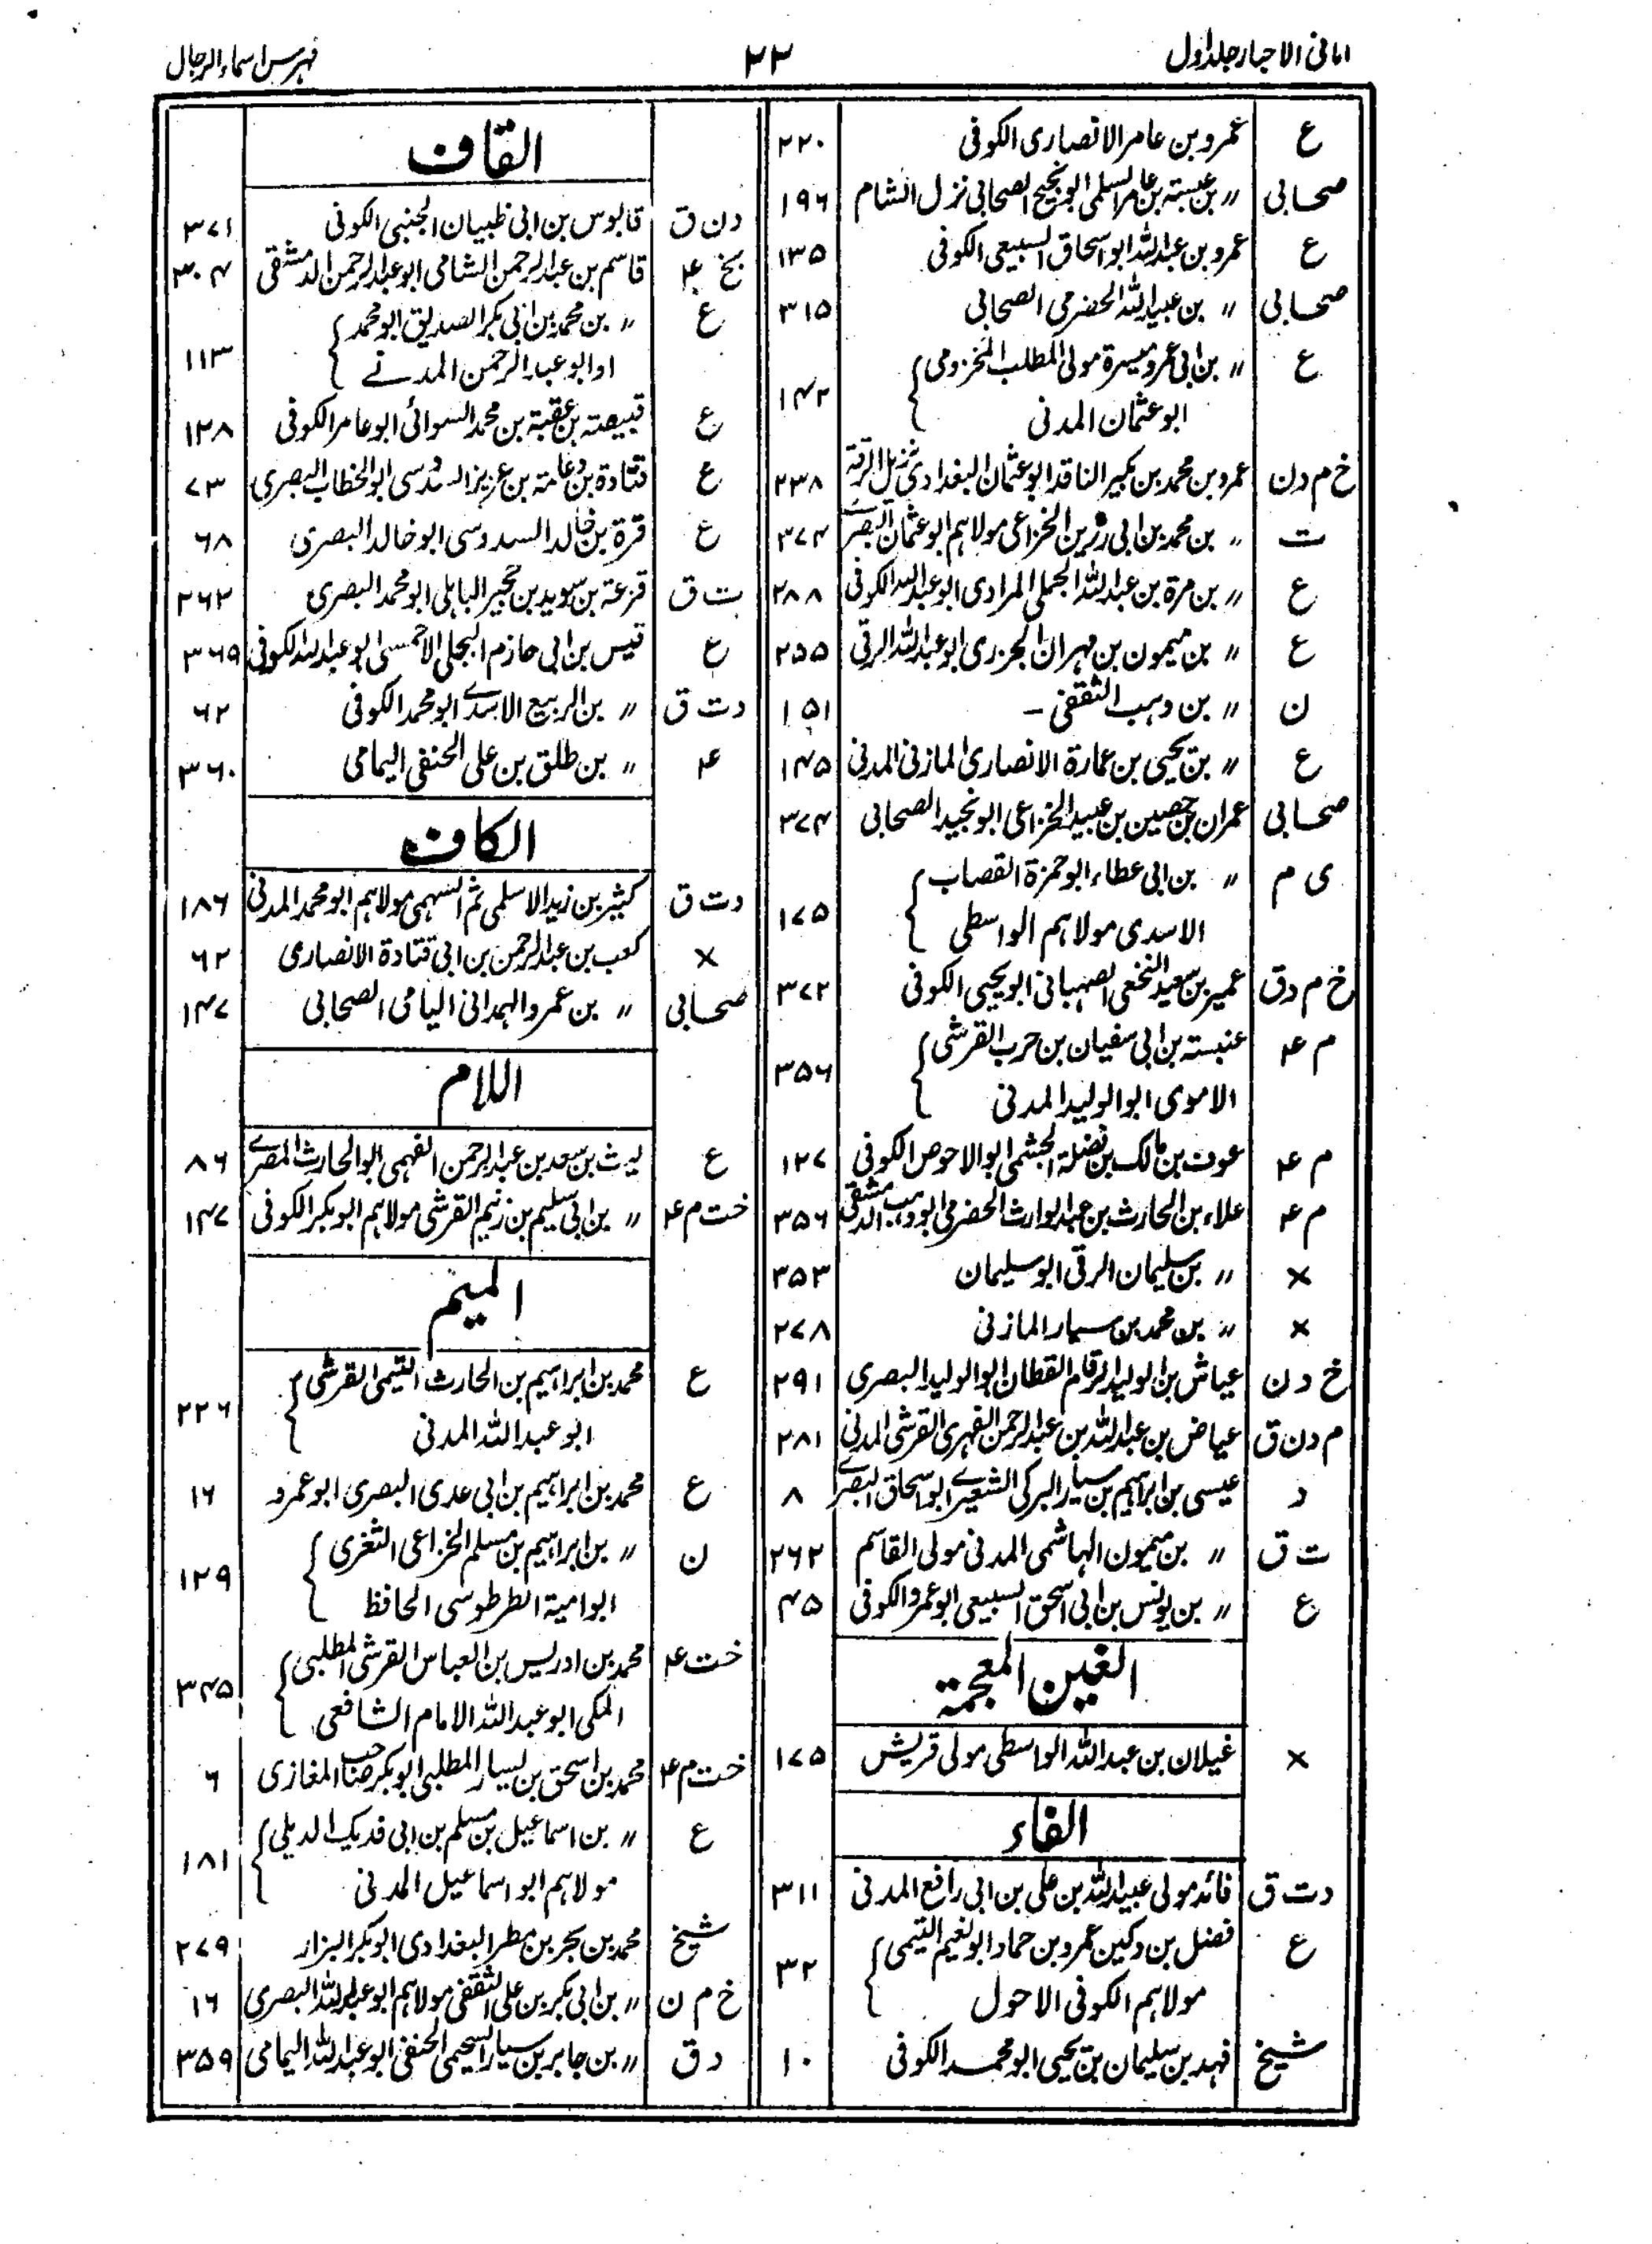 امانی الاحبار جلد اول
۲۲
فہرس اسماء الرجال
ع عمرو بن عامر الانصاری الکوفی ۲۲۰
صحابی 〃 بن عبسة بن عامر السلمی ابو نجیح الصحابی نزل الشام ۱۹۶
ع عمرو بن عبد اللہ ابو اسحاق السبیعی الکوفی ۱۳۵
صحابی 〃 بن عبید اللہ الحضرمی الصحابی ۳۱۵
ع 〃 بن ابی عمرو میسرة مولی المطلب المخزومی
ابو عثمان المدنی ۱۴۲
خ م د ن عمرو بن محمد بن بکیر الناقد ابو عثمان البغدادی نزیل الرقة ۲۳۸
ت 〃 بن محمد بن ابی رزین الخزاعی مولاہم ابو عثمان البصری ۳۷۴
ع 〃 بن مرة بن عبد اللہ الجملی المرادی ابو عبد اللہ الکوفی ۲۸۸
ع 〃 بن میمون بن مہران الجزری ابو عبد اللہ الرقی ۲۵۵
ن 〃 بن وہب الثقفی – ۱۵۱
ع 〃 بن یحیی بن عمارة الانصاری المازنی المدنی ۱۴۵
صحابی عمران بن حصین بن عبید الخزاعی ابو نجید الصحابی ۳۷۴
ی م 〃 بن ابی عطاء ابو حمزة القصاب
الاسدی مولاہم الواسطی ۱۷۵
خ م د ق عمیر بن سعید النخعی الصہبانی ابو یحیی الکوفی ۳۷۲
م ۴ عنبسة بن ابی سفیان بن حرب القرشی
الاموی ابو الولید المدنی ۳۵۶
م ۴ عوف بن مالک بن نضلة الجشمی ابو الاحوص الکوفی ۱۲۷
م ۴ علاء بن الحارث بن عبد الوارث الحضرمی ابو وہب الدمشقی ۳۵۶
× 〃 بن سلیمان الرقی ابو سلیمان ۳۵۳
× 〃 بن محمد بن سیار المازنی ۲۷۸
خ د ن عیاش بن الولید الرقام القطان ابو الولید البصری ۲۹۱
م د ن ق عیاض بن عبد اللہ بن عبد الرحمن الفہری القرشی المدنی ۲۸۱
د عیسی بن ابراہیم بن سیار البرکی الشعیری ابو اسحاق البصری ۸
ت ق 〃 بن میمون الہاشمی المدنی مولی القاسم ۲۶۲
ع 〃 بن یونس بن ابی اسحق السبیعی ابو عمرو الکوفی ۴۵
الغین المعجمة
× غیلان بن عبد اللہ الواسطی مولی قریش ۱۷۵
الفاء
د ت ق فائد مولی عبید اللہ بن علی بن ابی رافع المدنی ۳۱۱
ع فضل بن دکین عمرو بن حماد ابو نعیم التیمی
مولاہم الکوفی الاحول ۳۲
شیخ فہد بن سلیمان بن یحیی ابو محمد الکوفی ۱۰
القاف
د ن ق قابوس بن ابی ظبیان الجنبی الکوفی ۳۷۱
بخ ۴ قاسم بن عبد الرحمن الشامی ابو عبد الرحمن الدمشقی ۳۰۴
ع 〃 بن محمد بن ابی بکر الصدیق ابو محمد
او ابو عبد الرحمن المدنے ۱۱۳
ع قبیصة بن عقبة بن محمد السوائی ابو عامر الکوفی ۱۲۸
ع قتادة بن دعامة بن عزیز السدوسی ابو الخطاب البصری ۷۳
ع قرة بن خالد السدوسی ابو خالد البصری ۶۸
ت ق قزعة بن سوید بن حجیر الباہلی ابو محمد البصری ۲۶۲
ع قیس بن ابی حازم البجلی الاحمسی ابو عبد اللہ الکوفی ۳۶۹
د ت ق 〃 بن الربیع الاسدے ابو محمد الکوفی ۶۲
۴ 〃 بن طلق بن علی الحنفی الیمامی ۳۶۰
الکاف
د ت ق کثیر بن زید الاسلمی ثم السہمی مولاہم ابو محمد المدنی ۱۸۶
× کعب بن عبد الرحمن بن ابی قتادة الانصاری ۶۲
صحابی 〃 بن عمرو الہمدانی الیامی الصحابی ۱۴۷
اللام
ع لیث بن سعد بن عبد الرحمن الفہمی ابو الحارث المصرے ۸۶
خت م ۴ 〃 بن ابی سلیم بن زنیم القرشی مولاہم ابو بکر الکوفی ۱۴۷
المیم
ع محمد بن ابراہیم بن الحارث التیمی القرشی
ابو عبد اللہ المدنی ۲۲۶
ع محمد بن ابراہیم بن ابی عدی البصری ابو عمرو ۱۶
ن 〃 بن ابراہیم بن مسلم الخزاعی الثغری
ابو امیة الطرطوسی الحافظ ۱۲۹
خت ۴ محمد بن ادریس بن العباس القرشی المطلبی
المکی ابو عبد اللہ الامام الشافعی ۳۴۵
خت م ۴ محمد بن اسحق بن یسار المطلبی ابو بکر صاحب المغازی ۶
ع 〃 بن اسماعیل بن مسلم بن ابی فدیک الدیلی
مولاہم ابو اسماعیل المدنی ۱۸۱
شیخ محمد بن بحر بن مطر البغدادی ابو بکر البزار ۲۷۹
خ م ن 〃 بن ابی بکر بن علی الثقفی مولاہم ابو عبد اللہ البصری ۱۶
د ق 〃 بن جابر بن سیار السحیمی الحنفی ابو عبد اللہ الیمامی ۳۵۹